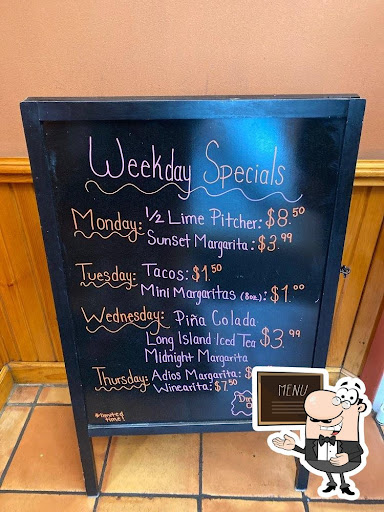 Weekday Specials
Monday: 1/2 Lime Pitcher: $8.50
Sunset Margarita: $3.99
Tuesday: Tacos: $1.50
Mini Margaritas (8oz.): $1.00
Wednesday: Piña Colada
Long Island Iced Tea $3.99
Midnight Margarita
Thursday: Adios Margarita: $
Winearita: $7.50
*limited time!
MENU